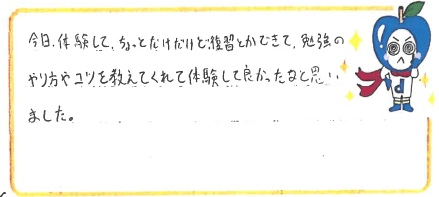 今日、体験して、ちょっとだけだけど復習とかできて、勉強の
やり方やコツを教えてくれて体験して良かったなと思い
ました。
d